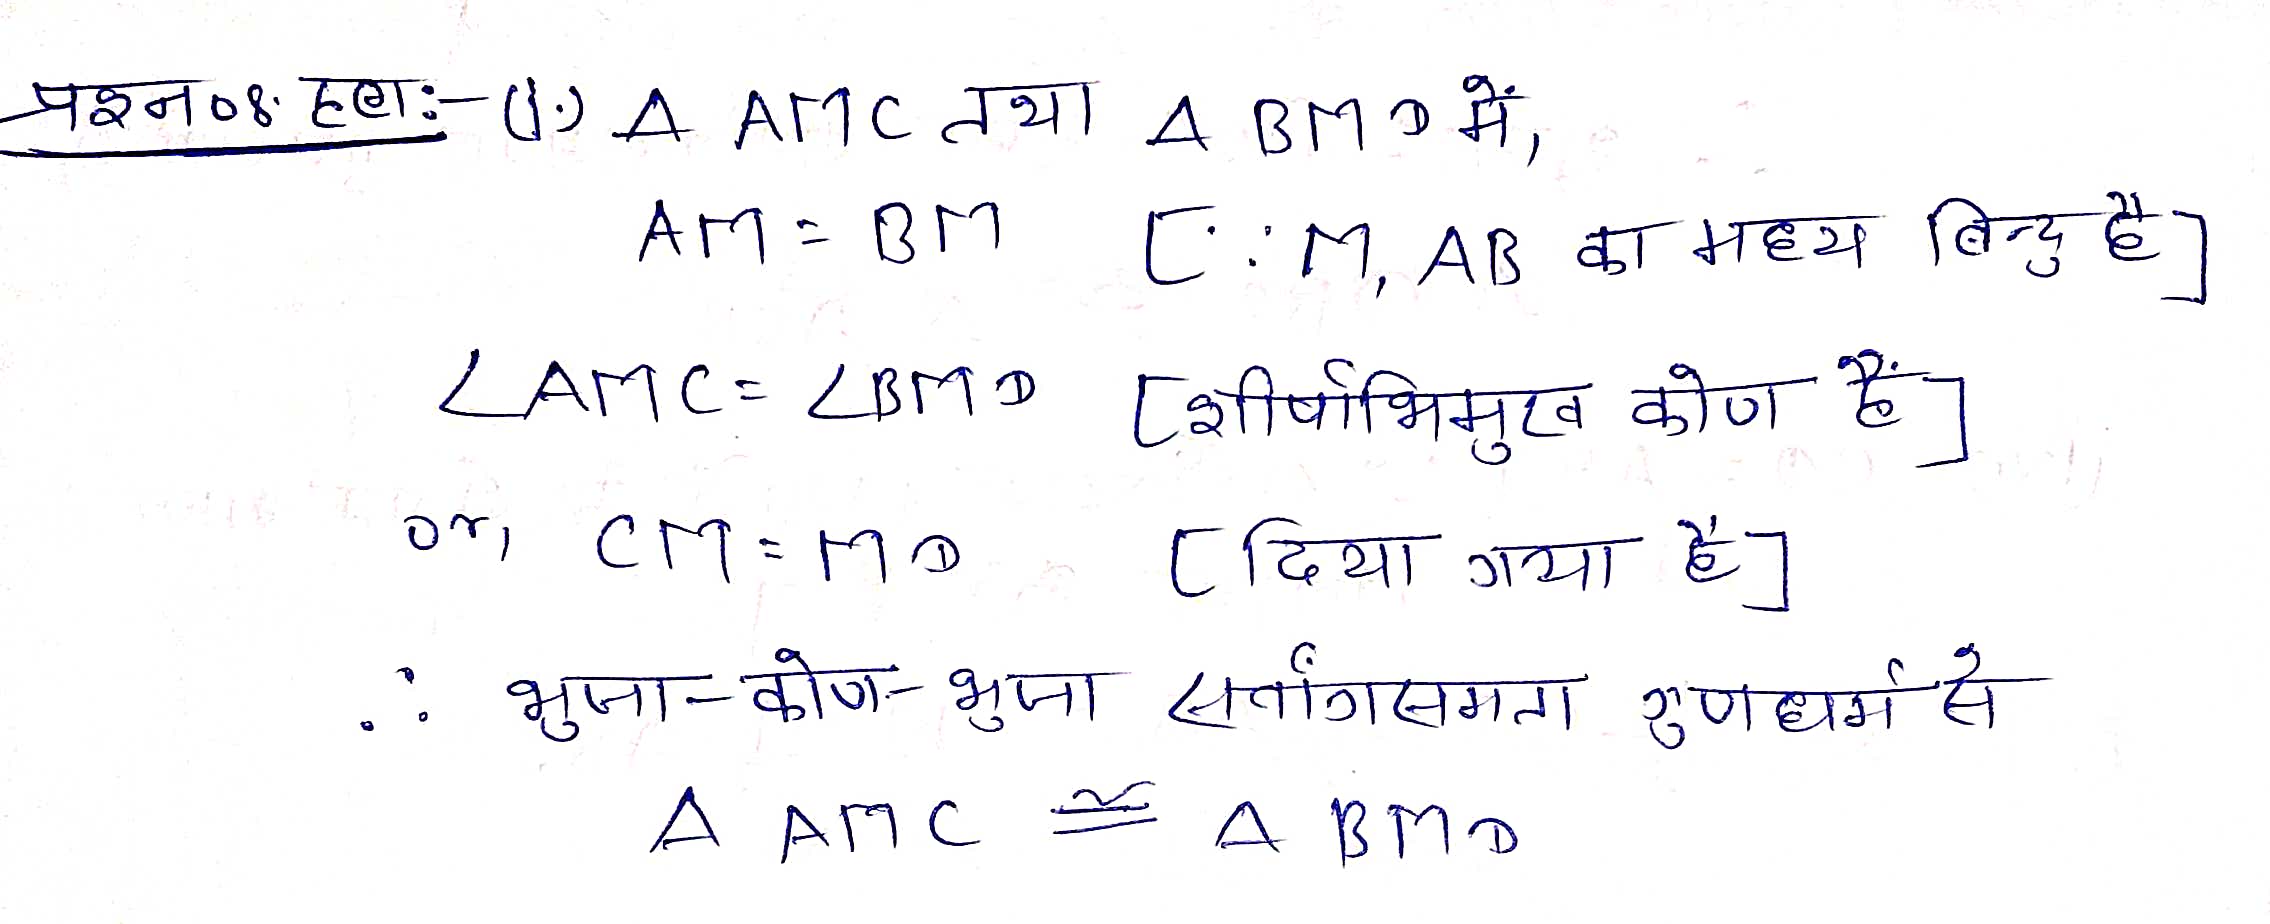 प्रश्न 08. हल:- (i.) Δ AMC तथा Δ BMD में,
AM = BM [∵ M, AB का मध्य बिन्दु है]
∠AMC = ∠BMD [शीर्षाभिमुख कोण हैं]
or, CM = MD [दिया गया है]
∴ भुजा-कोण-भुजा सर्वांगसमता गुणधर्म से
Δ AMC ≅ Δ BMD